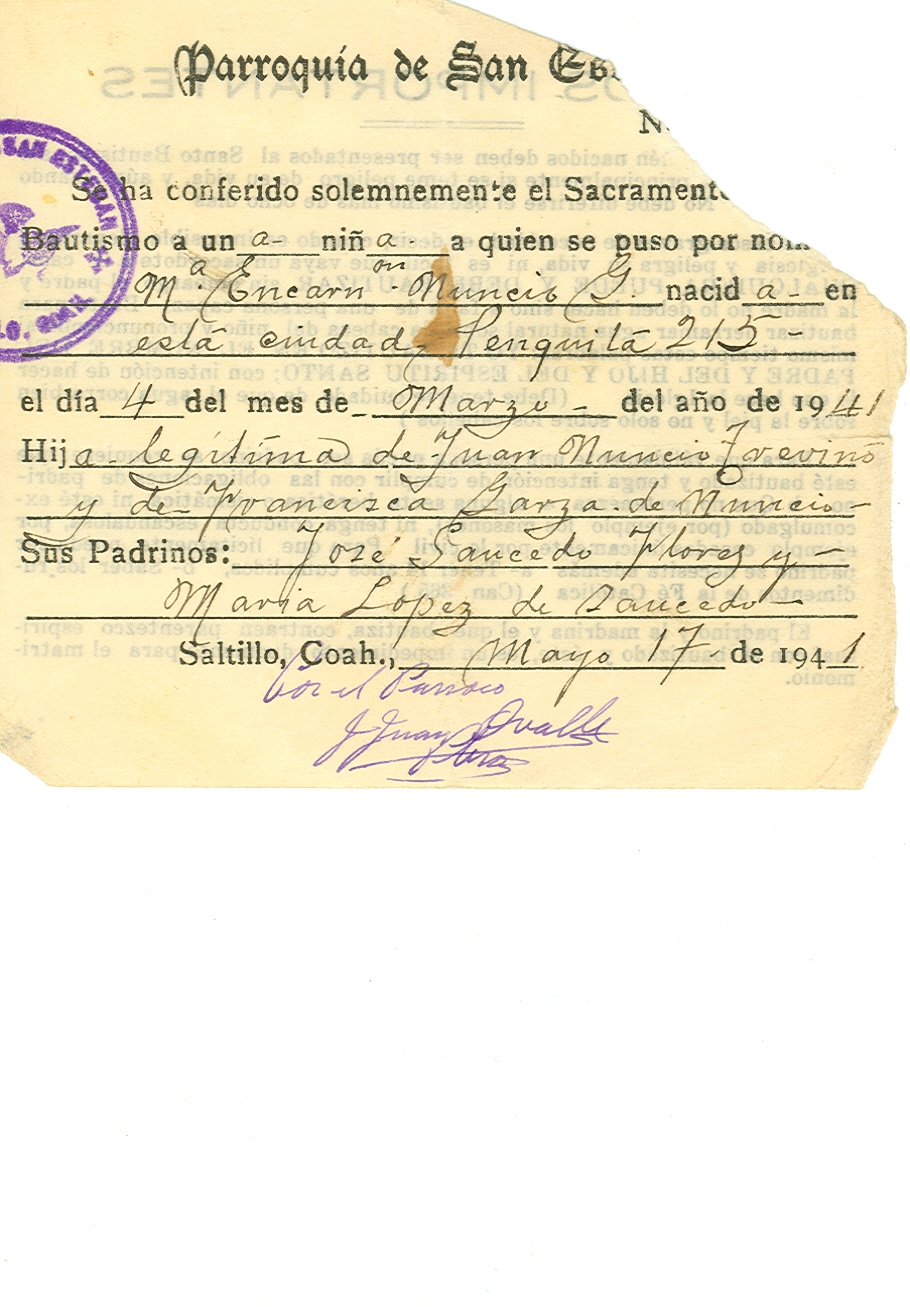 Parroquia de San Es
N
SAN ESTEBAN
Se ha conferido solemnemente el Sacramento
Bautismo a un a- niñ a. a quien se puso por nom
Mª Encarnon Nuncio G. nacid a- en
está ciudad, 215-
el día 4 del mes de Marzo - del año de 1941
Hija legítima de Juan Nuncio Treviño
y de Francisca Garza de Nuncio-
Sus Padrinos: José Saucedo Flores y-
Maria López de Saucedo-
Saltillo, Coah., Mayo 17- de 1941
Por el Parroco
J Juan Ovalle